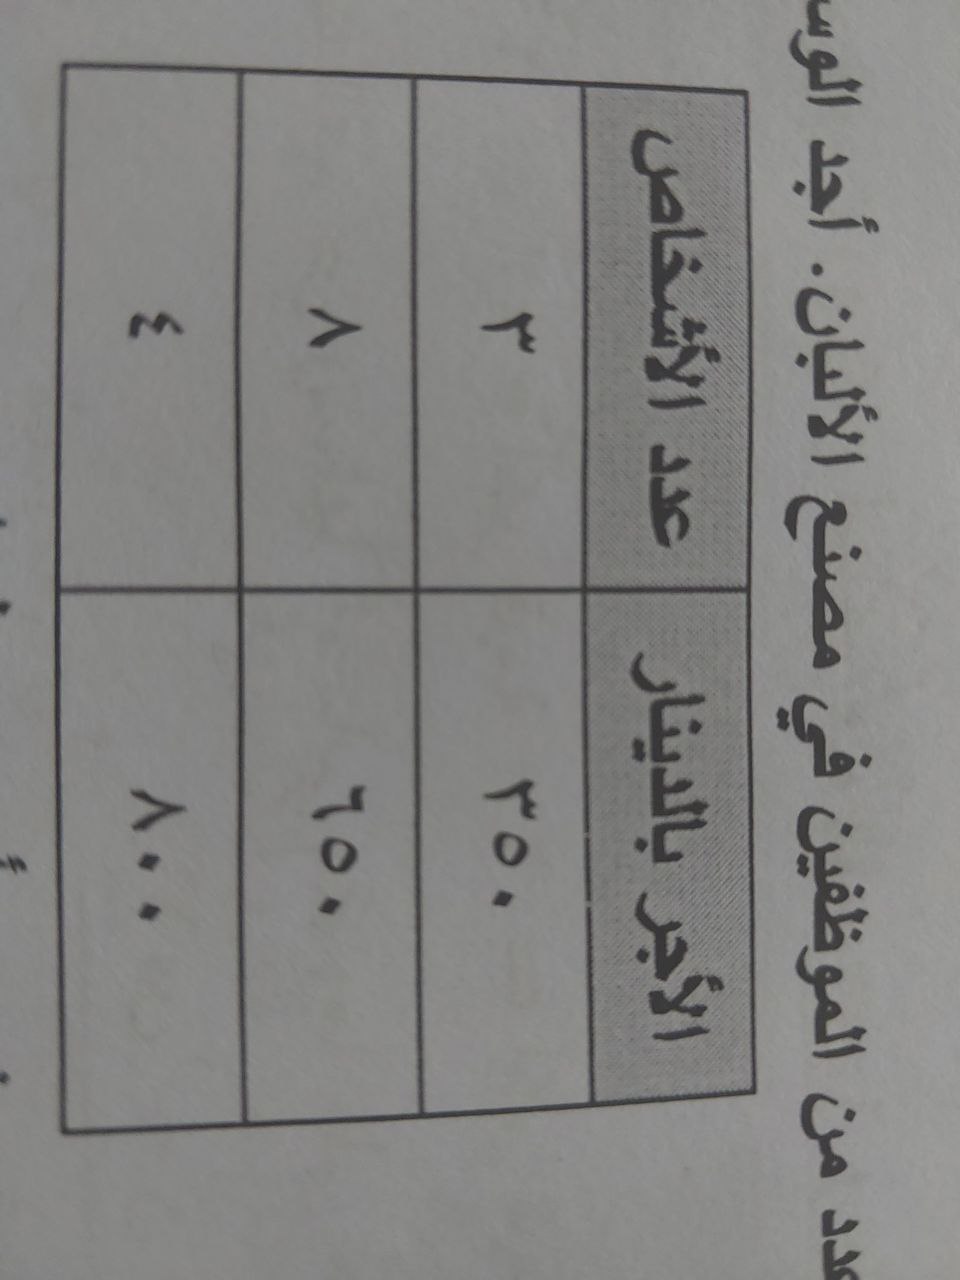 من الموظفين في مصنع الألبان. أجد
الأجر بالدينار عدد الأشخاص
٣٥٠ ٣
٦٥٠ ٨
٨٠٠ ٤